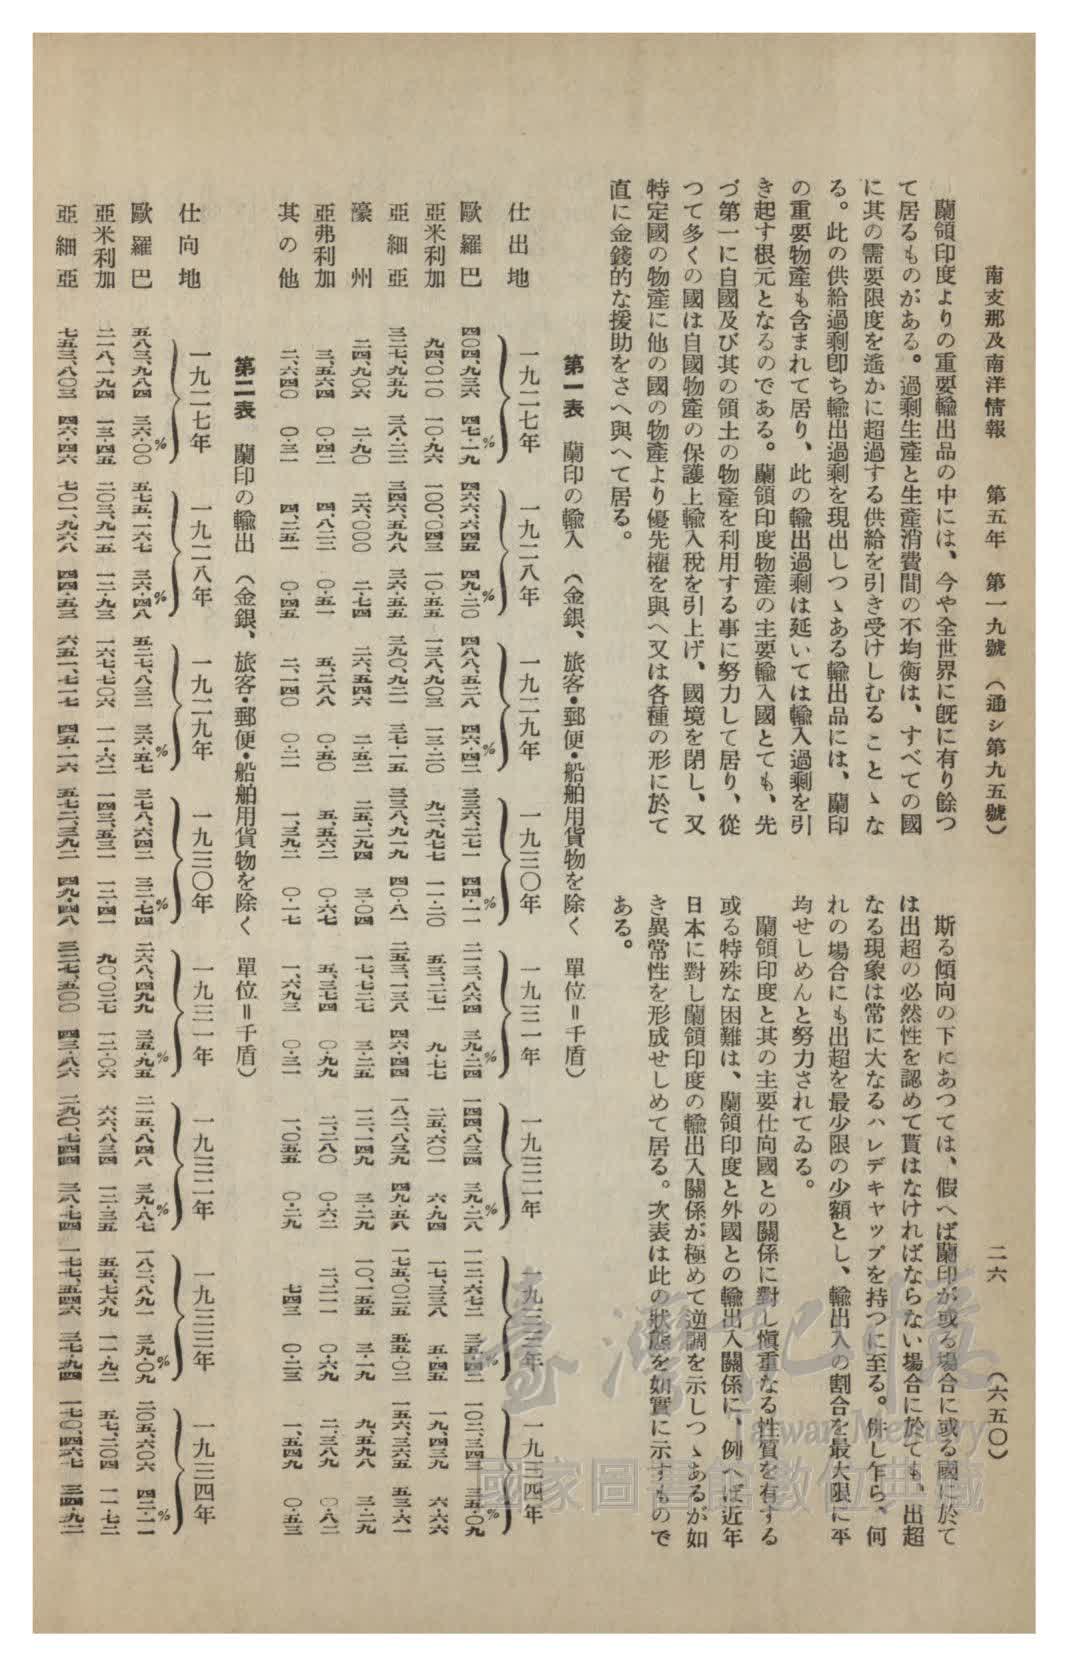 南支那及南洋情報　第五年　第一九號（通シ第九五號）　二六　（六五〇）
蘭領印度よりの重要輸出品の中には、今や全世界に既に有り餘つ
て居るものがある。過剩生產と生產消費間の不均衡は、すべての國
に其の需要限度を遙かに超過する供給を引き受けしむることゝな
る。此の供給過剩卽ち輸出過剩を現出しつゝある輸出品には、蘭印
の重要物產も含まれて居り、此の輸出過剩は延いては輸入過剩を引
き起す根元となるのである。蘭領印度物產の主要輸入國とても、先
づ第一に自國及び其の領土の物產を利用する事に努力して居り、從
つて多くの國は自國物產の保護上輸入稅を引上げ、國境を閉し、又
特定國の物產に他の國の物產より優先權を與へ又は各種の形に於て
直に金錢的な援助をさへ與へて居る。
斯る傾向の下にあつては、假へば蘭印が或る場合に或る國に於て
は出超の必然性を認めて貰はなければならない場合に於ても、出超
なる現象は常に大なるハレデキャップを持つに至る。倂し乍ら、何
れの場合にも出超を最少限の少額とし、輸出入の割合を最大限に平
均せしめんと努力されてゐる。
蘭領印度と其の主要仕向國との關係に對し愼重なる性質を有する
或る特殊な困難は、蘭領印度と外國との輸出入關係に、例へば近年
日本に對し蘭領印度の輸出入關係が極めて逆調を示しつゝあるが如
き異常性を形成せしめて居る。次表は此の狀態を如實に示すもので
ある。
第一表　蘭印の輸入（金銀、旅客・郵便・船舶用貨物を除く　單位＝千盾）
仕出地　一九二七年　一九二八年　一九二九年　一九三〇年　一九三一年　一九三二年　一九三三年　一九三四年
% % % % % % % %
歐羅巴　四〇四、九三六　四七・一九　四六六、六四五　四九・二〇　四八八、五二八　四六・四二　三三六、二七一　四四・一一　二一三、八六四　三九・二四　一四四、八三四　三九・二八　一一二、六七二　三五・四二　一〇二、三四三　三五・〇九
亞米利加　九四、〇一〇　一〇・九六　一〇〇、〇四三　一〇・五五　一三八、九〇三　一三・二〇　九二、九七七　一一・二〇　五三、二七一　九・七七　二五、六〇一　六・九四　一七、三三八　五・四五　一九、四三九　六・六六
亞細亞　三二七、九五九　三八・二二　三四六、五九八　三六・五五　三九〇、九二一　三七・一五　三三八、九一九　四〇・八一　二五三、一三八　四六・四四　一八二、八三九　四九・五八　一七五、〇二五　五五・〇二　一五六、三六五　五三・六一
濠州　二四、九〇六　二・九〇　二六、〇〇〇　二・七四　二六、五四六　二・五二　二五、二九四　三・〇四　一七、七二七　三・二五　一二、一四九　三・二九　一〇、一五五　三・一九　九、五九八　三・二九
亞弗利加　三、五六四　〇・四二　四、八二二　〇・五一　五、二八八　〇・五〇　五、五六二　〇・六七　五、三七四　〇・九九　二、二八〇　〇・六二　二、二一一　〇・六九　二、三八九　〇・八二
其の他　二、六四〇　〇・三一　四、二五一　〇・四五　二、一四〇　〇・二一　一、三九二　〇・一七　一、六九三　〇・三一　一、〇五五　〇・二九　七四三　〇・二三　一、五四九　〇・五三
第二表　蘭印の輸出（金銀、旅客・郵便・船舶用貨物を除く　單位＝千盾）
仕向地　一九二七年　一九二八年　一九二九年　一九三〇年　一九三一年　一九三二年　一九三三年　一九三四年
% % % % % % % %
歐羅巴　五八三、九八四　三六・〇〇　五七五、一六七　三六・四八　五二七、八三二　三六・五七　三七八、六四二　三二・七四　二六八、四九九　三五・九五　二一五、八四八　三九・八七　一八二、八九一　三九・〇九　二〇五、六〇六　四二・一一
亞米利加　二一八、一九四　一三・四五　二〇三、九一五　一二・九三　一六七、七〇六　一一・六二　一四三、五三一　一二・四一　九〇、〇二七　一二・〇六　六六、八三四　一二・三五　五五、七六九　一一・九二　五七、二〇四　一一・七二
亞細亞　七五三、八〇三　四六・四六　七〇一、九六八　四四・五三　六五一、七一七　四五・一六　五七二、三九二　四九・四八　三二七、五〇〇　四三・八六　二九〇、七四四　三八・七四　一七七、五四六　三七・九四　一七〇、四六七　三四・九二
臺灣記憶
Taiwan Memory
國家圖書館數位典藏